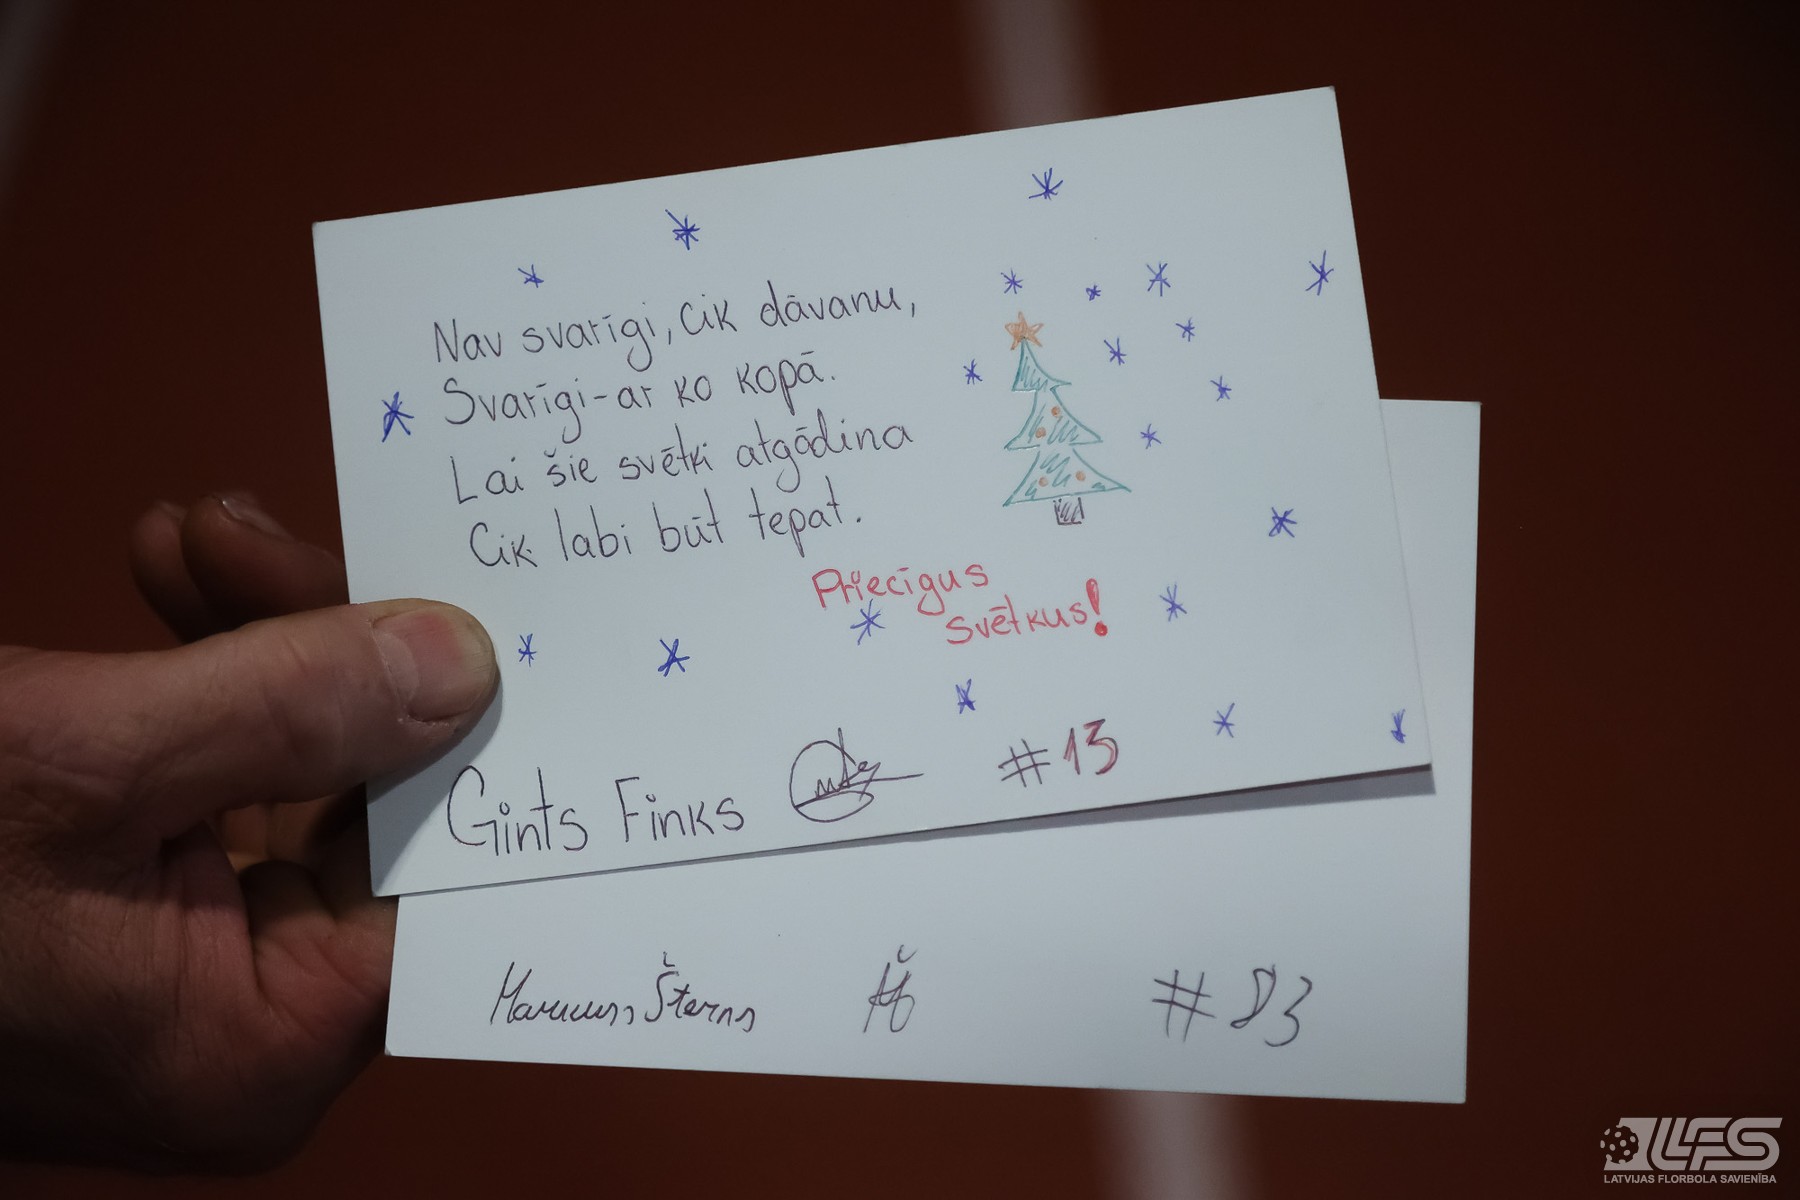 Nav svarīgi, cik dāvanu,
Svarīgi-ar ko kopā.
Lai šie svētki atgādina
Cik labi būt tepat.
Priecīgus
svētkus!
Gints Finks #13
Markuss Šterns #83
LFS
LATVIJAS FLORBOLA SAVIENĪBA